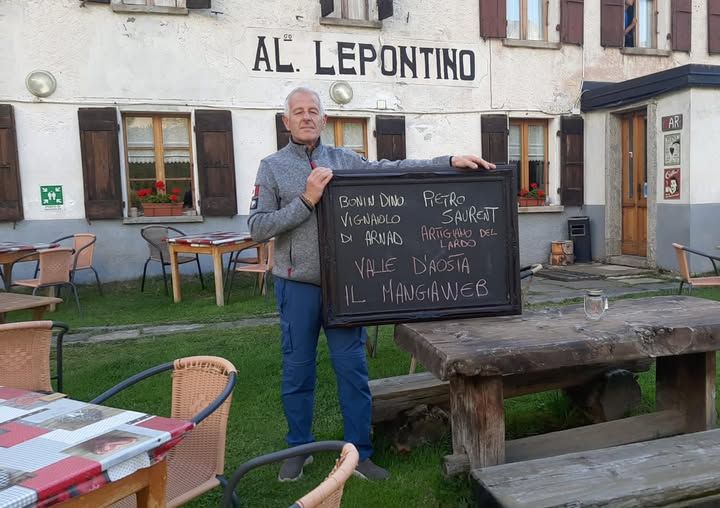 AL.go LEPONTINO
BAR
BONIN DINO
VIGNAIOLO
DI ARNAD
PIETRO
SAURENT
ARTIGIANO DEL
LARDO
VALLE D'AOSTA
IL MANGIAWEB